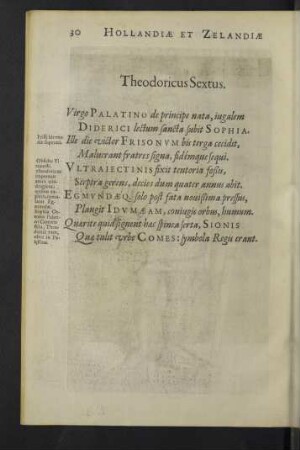 30 HOLLANDIÆ ET ZELANDIÆ
Theodoricus Sextus.
Virgo PALATINO de principe nata, iugalem
DIDERICI lectum sancta subit SOPHIA.
Ille die victor FRISONVM bis terga cecidit,
Maluerant fratres signa, fidemque sequi.
VLTRAIECTINIS fixit tentoria fossis,
Sceptra gerens, decies dum quater annus abit.
EGMVNDÆQ; solo post fata nouissima pressus,
Plangit IDVMÆAM, coniugis orbus, humum.
Quærite quid signent hac spinea serta, SIONIS
Quæ tulit vrbe COMES: symbola Regis erant.